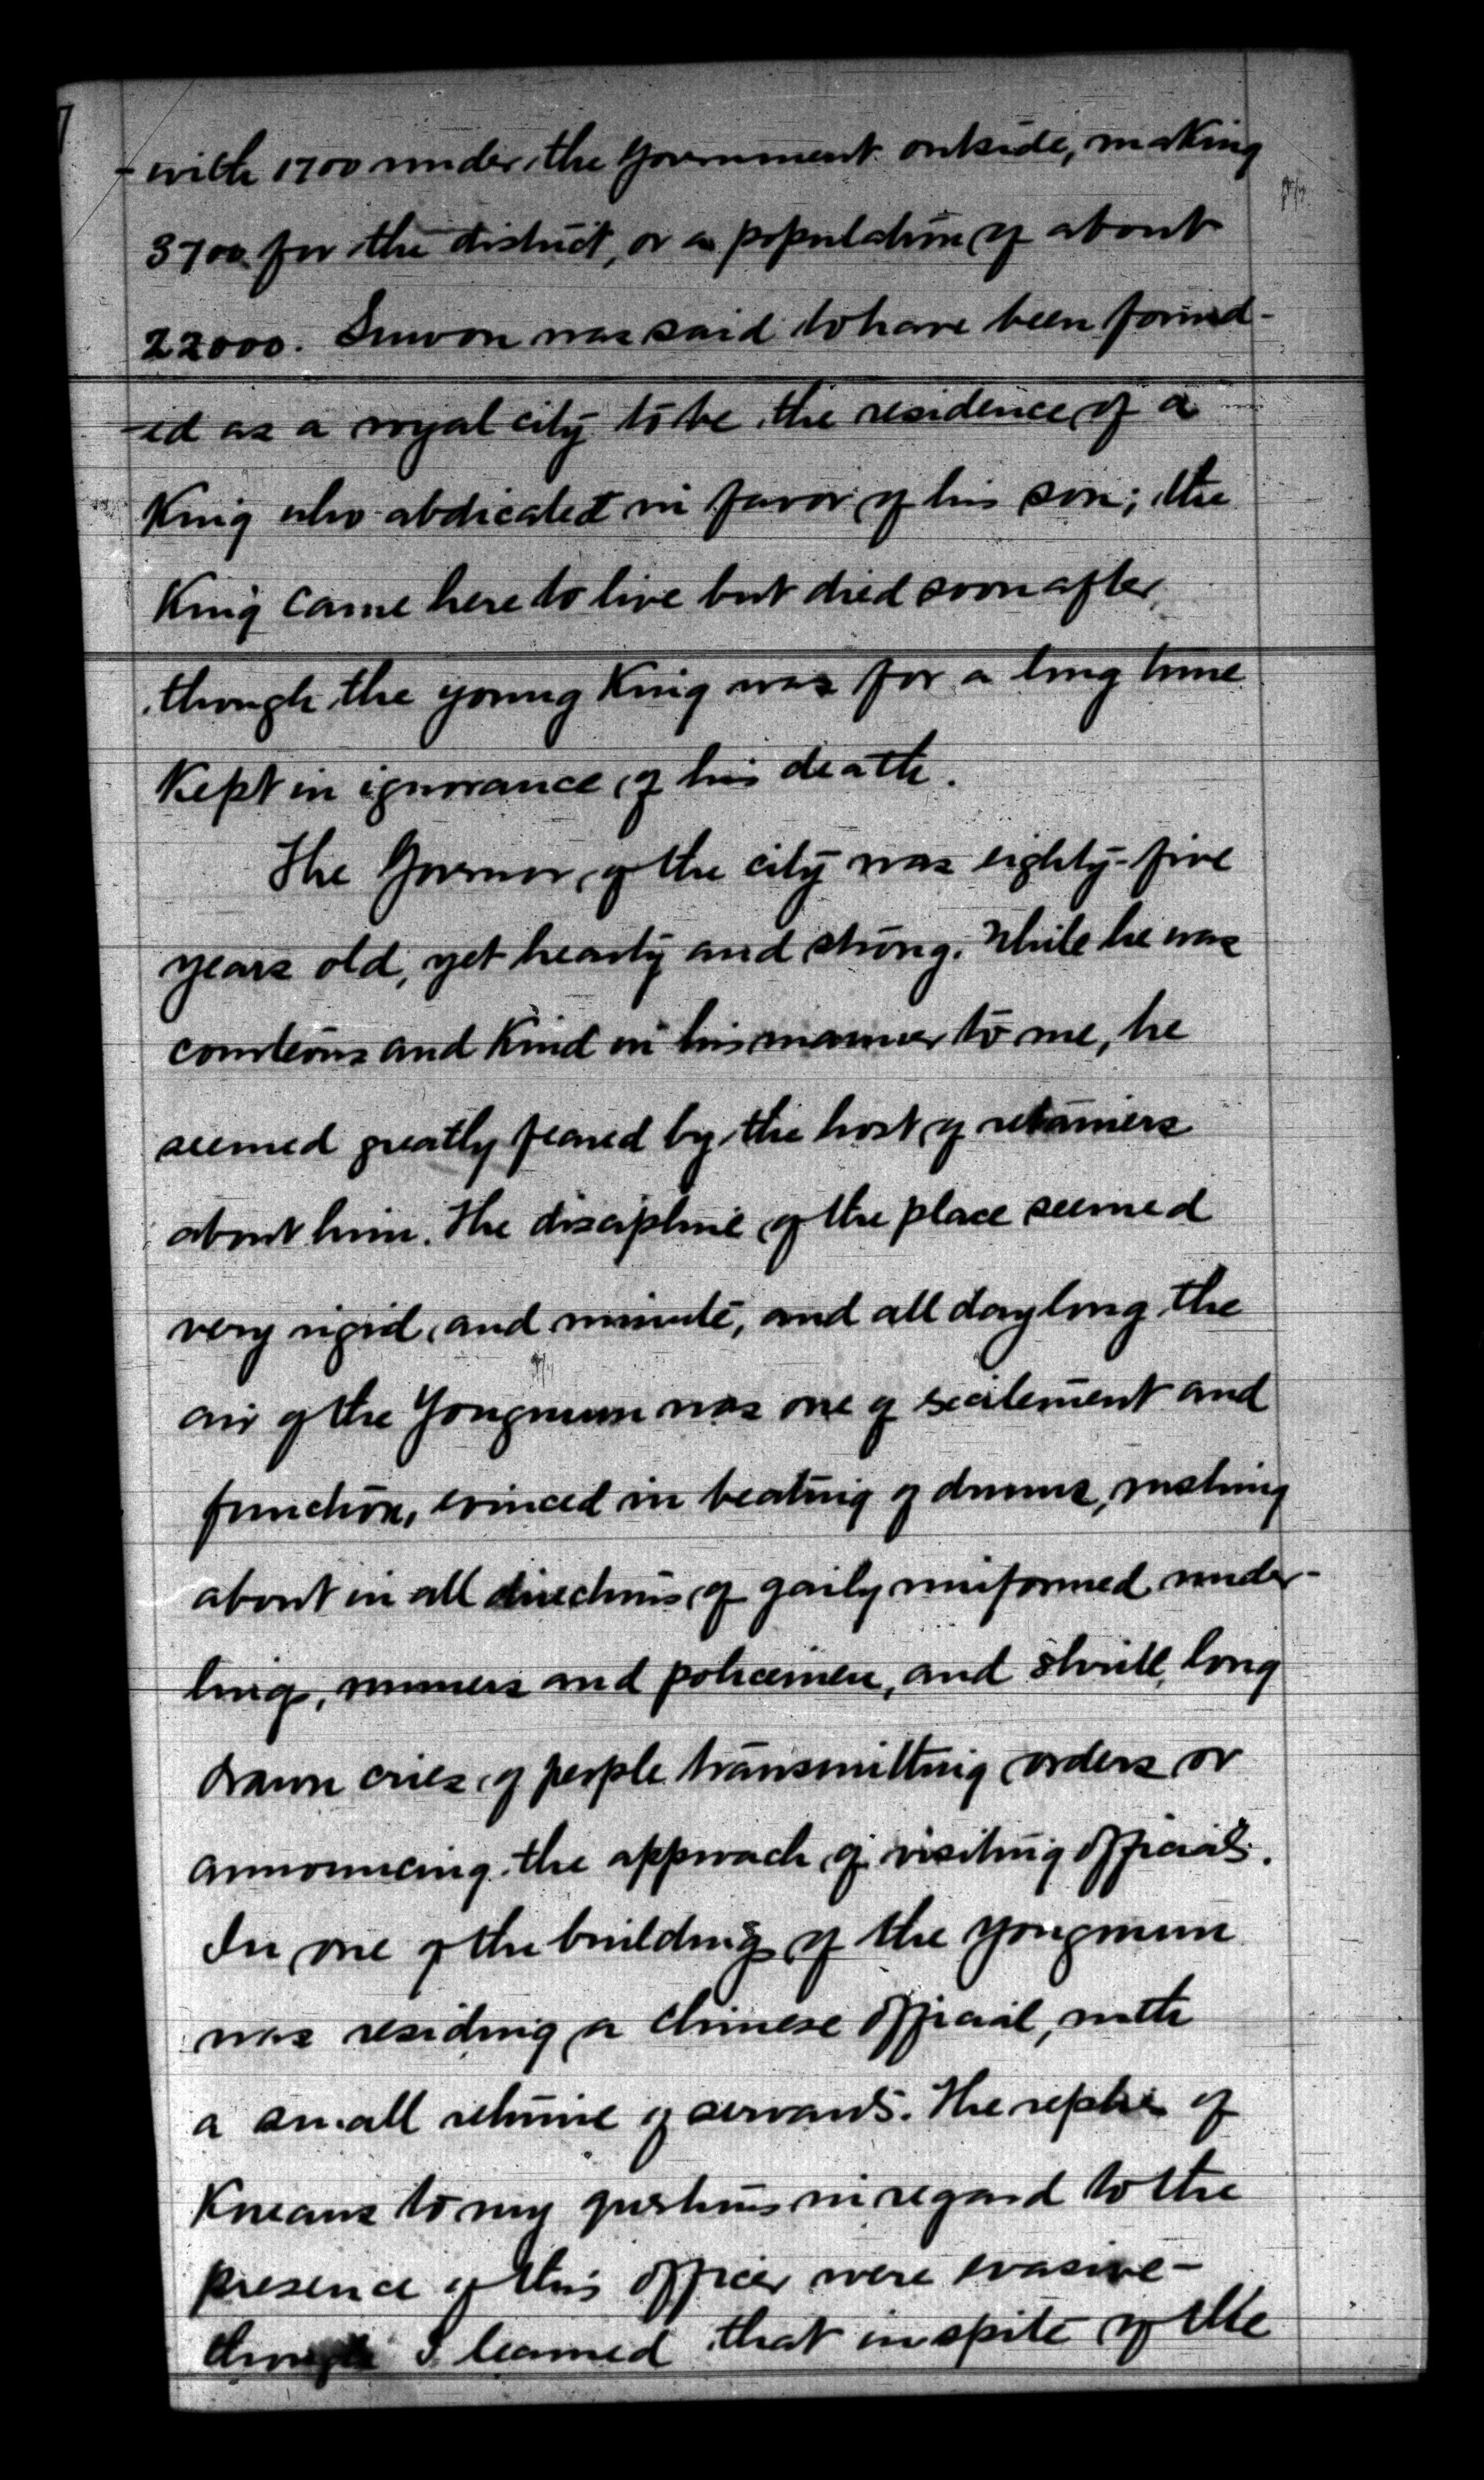 - with 1700 under the Government outside, making
3700 for the district, or a population of about
22000. Suwon was said to have been found-
-ed as a royal city to be the residence of a
King who abdicated in favor of his son; the
King came here to live but died soon after,
though the young King was for a long time
Kept in ignorance of his death.
The Governor of the city was eighty-five
years old, yet hearty and strong. While he was
courteous and Kind in his manner to me, he
seemed greatly feared by the host of retainers
about him. The discipline of the place seemed
very rigid, and minute, and all day long the
air of the Yongmun was one of excitement and
function, evinced in beating of drums, rushing
about in all directions of gaily uniformed under-
lings, runners and policemen, and shrill, long
drawn cries of people transmitting orders or
announcing the approach of visiting officials.
In one of the buildings of the yongmun
was residing a Chinese official, with
a small retinue of servants. The replies of
Koreans to my questions in regard to the
presence of this officer were evasive -
though I learned that in spite of the